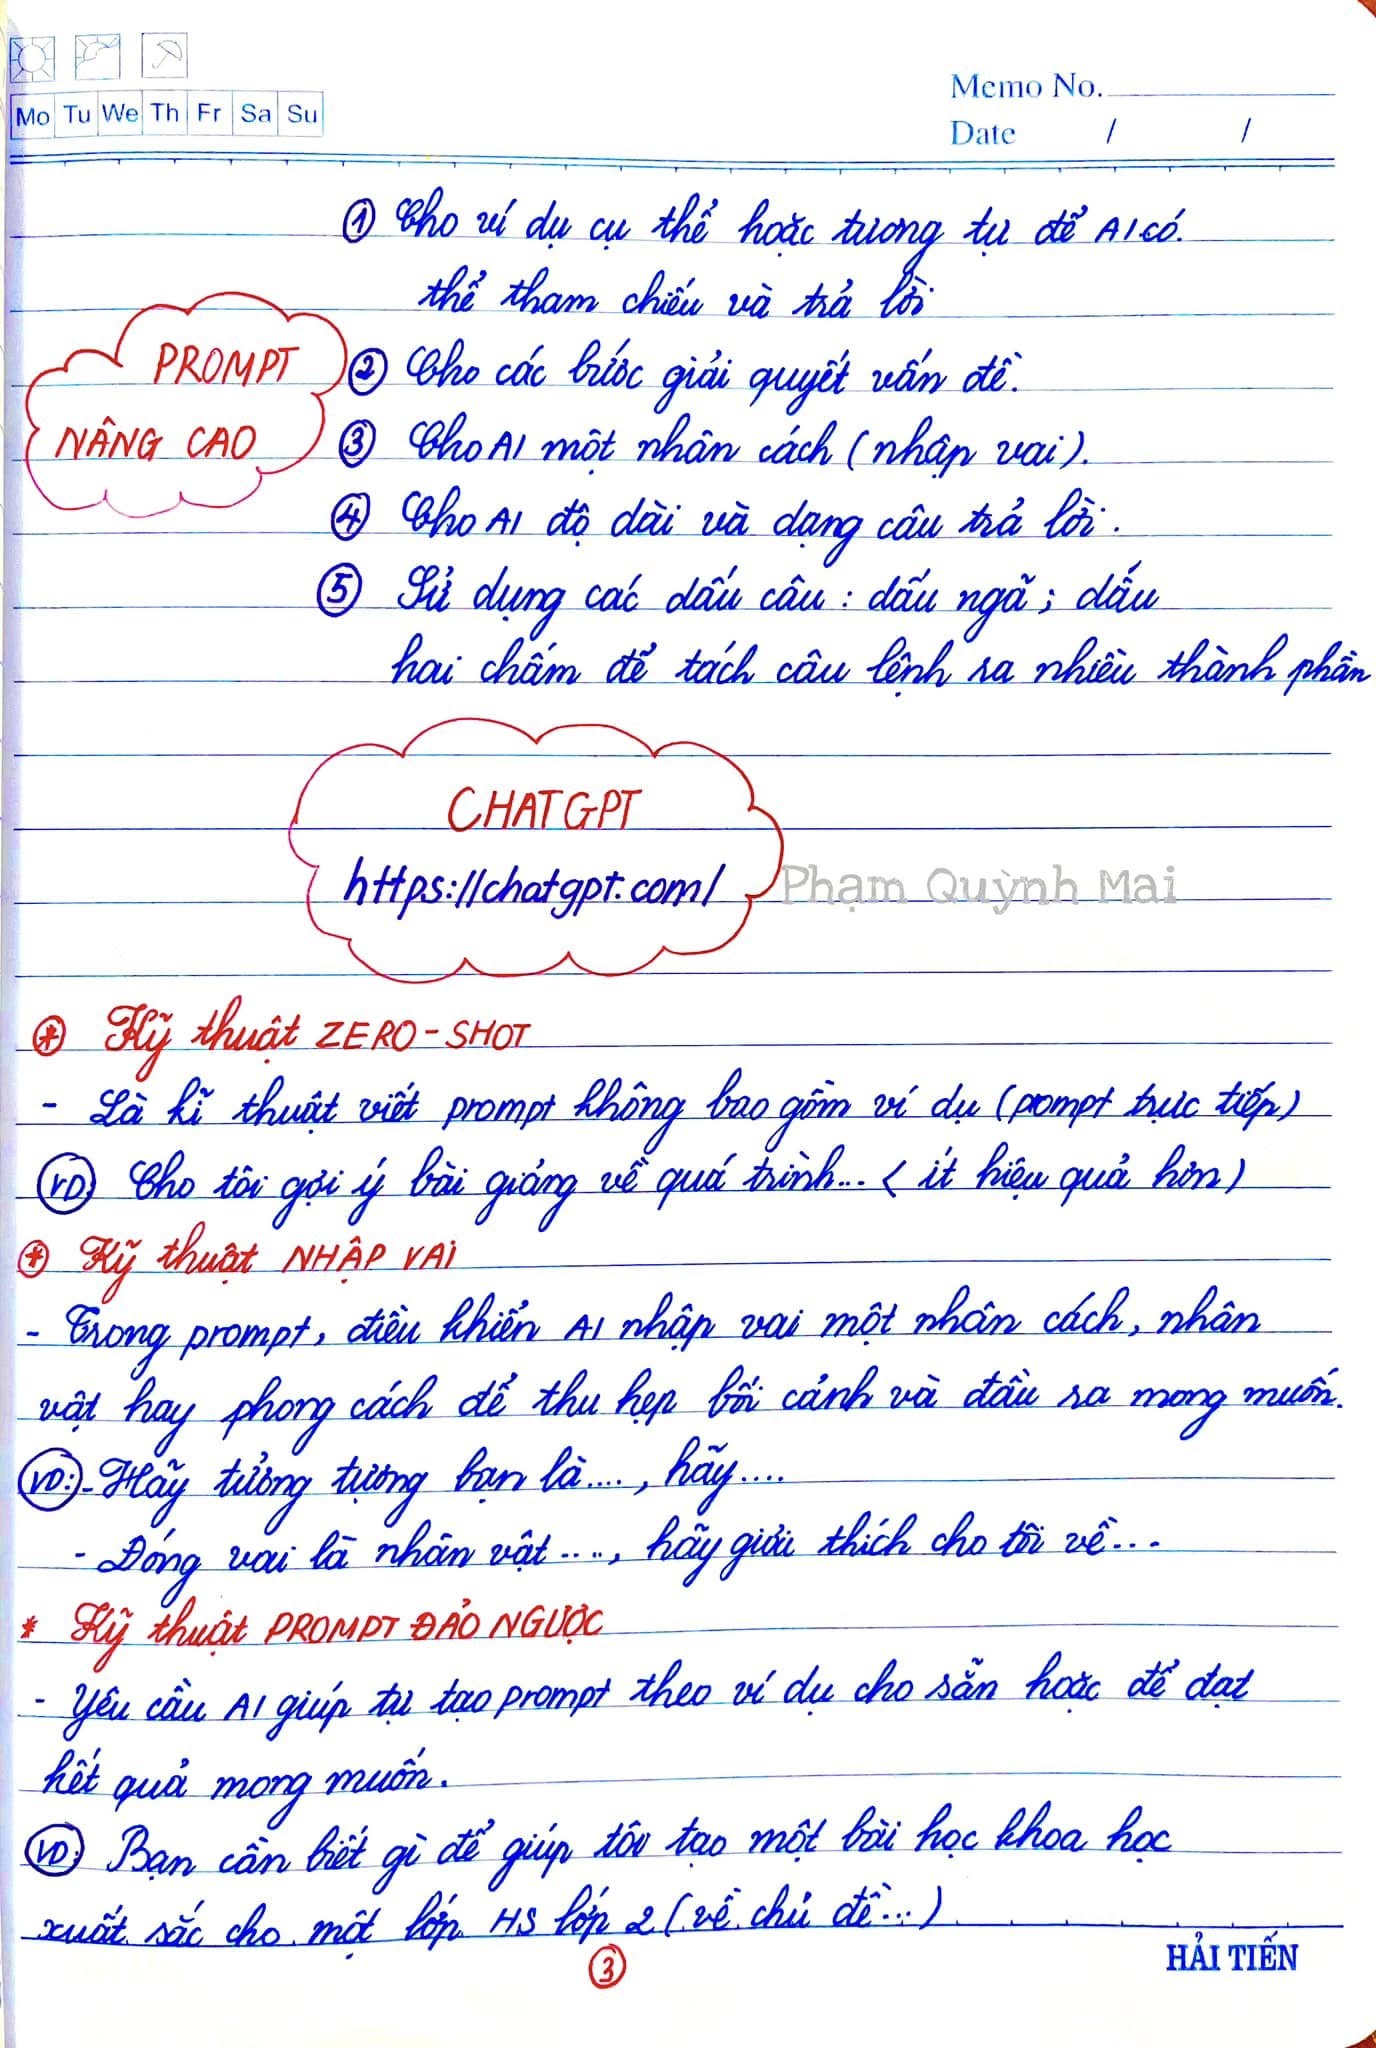 Mo Tu We Th Fr Sa Su
Memo No.
Date / /
① Cho ví dụ cụ thể hoặc tương tự để AI có
thể tham chiếu và trả lời
PROMPT
NÂNG CAO
② Cho các bước giải quyết vấn đề.
③ Cho AI một nhân cách (nhập vai).
④ Cho AI độ dài và dạng câu trả lời.
⑤ Sử dụng các dấu câu: dấu ngã; dấu
hai chấm để tách câu lệnh ra nhiều thành phần
CHATGPT
https://chatgpt.com/
Phạm Quỳnh Mai
* Kỹ thuật ZERO-SHOT
- Là kĩ thuật viết prompt không bao gồm ví dụ (prompt trực tiếp)
VD: Cho tôi gợi ý bài giảng về quá trình... (ít hiệu quả hơn)
* Kỹ thuật NHẬP VAI
- Trong prompt, điều khiển AI nhập vai một nhân cách, nhân
vật hay phong cách để thu hẹp bối cảnh và đầu ra mong muốn.
VD: - Hãy tưởng tượng bạn là...., hãy....
- Đóng vai là nhân vật...., hãy giải thích cho tôi về...
* Kỹ thuật PROMPT ĐẢO NGƯỢC
- Yêu cầu AI giúp tự tạo prompt theo ví dụ cho sẵn hoặc để đạt
kết quả mong muốn.
VD: Bạn cần biết gì để giúp tôi tạo một bài học khoa học
xuất sắc cho một lớp HS lớp 2 (về chủ đề...)
③
HẢI TIẾN